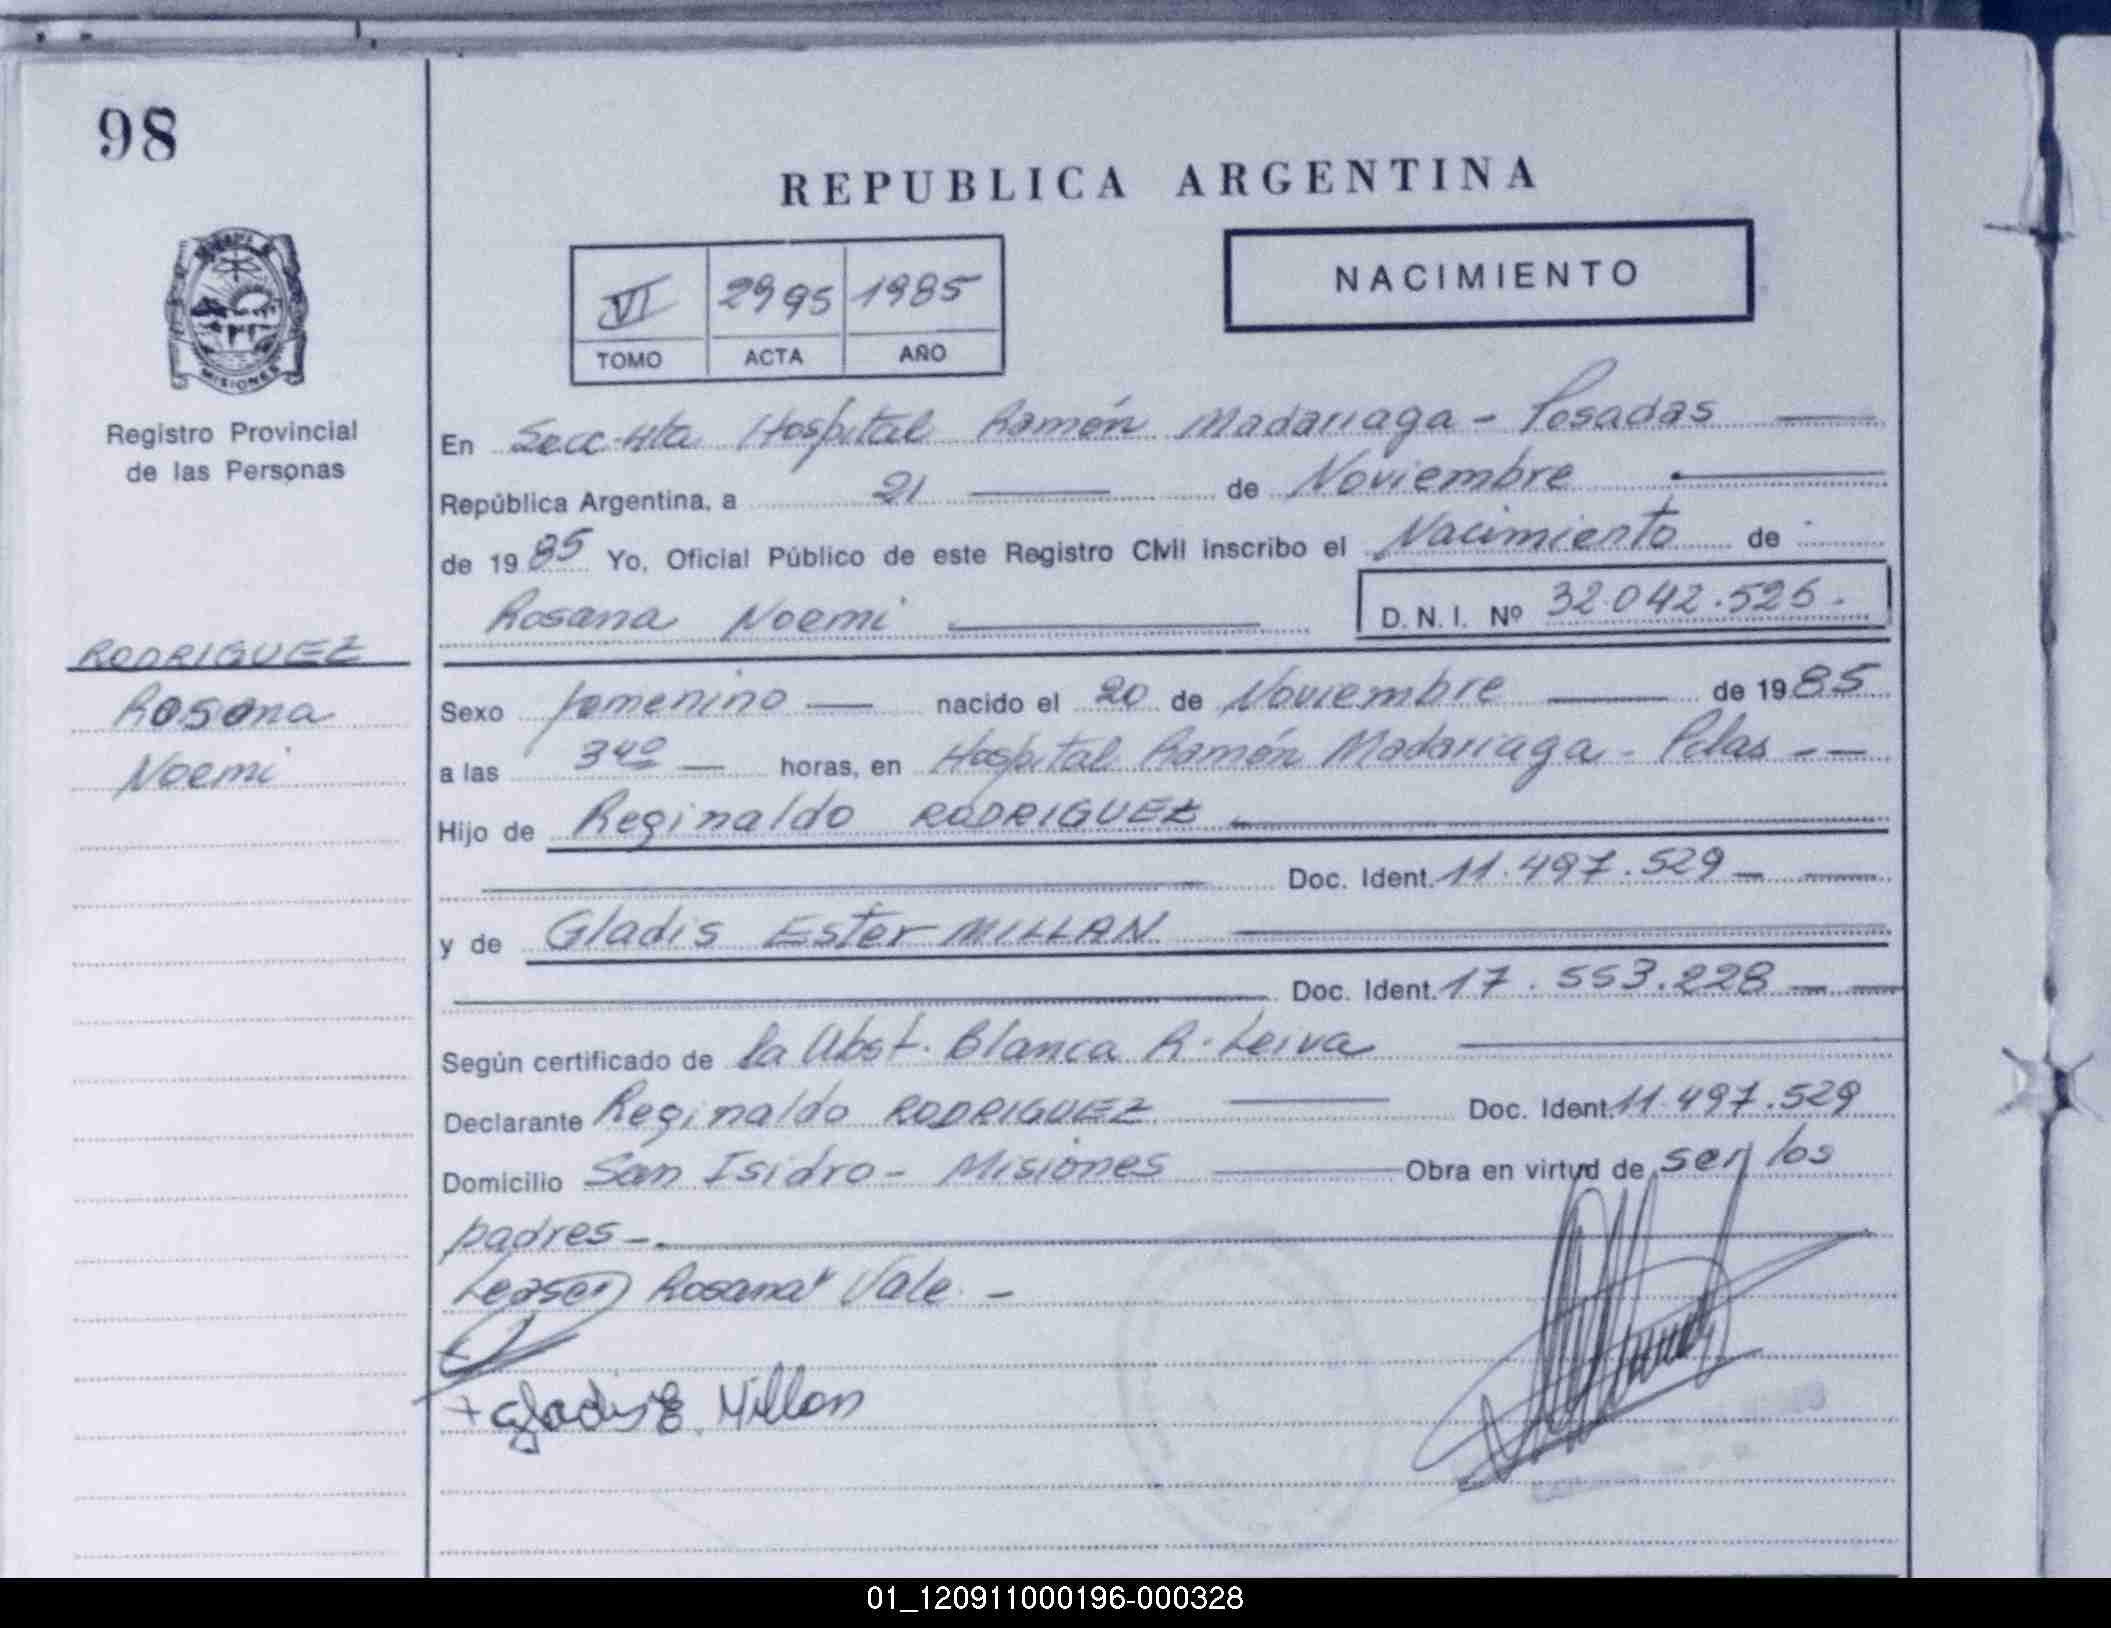 98
REPUBLICA ARGENTINA
NACIMIENTO
VI 2995 1985
TOMO ACTA AÑO
MISIONES
Registro Provincial
de las Personas
En Secc. 4ta Hospital Ramón Madariaga - Posadas
República Argentina, a 21 de Noviembre
de 1985 Yo, Oficial Público de este Registro Civil inscribo el Nacimiento de :
Rosana Noemi D.N.I. Nº 32.042.526.
RODRIGUEZ
Rosana
Noemi
Sexo femenino nacido el 20 de Noviembre de 1985
a las 340 horas, en Hospital Ramón Madariaga - Pdas
Hijo de Reginaldo RODRIGUEZ
Doc. Ident. 11.497.529
y de Gladis Ester MILLAN
Doc. Ident. 17.553.228
Según certificado de la Obst. Blanca R. Leiva
Declarante Reginaldo RODRIGUEZ Doc. Ident. 11.497.529
Domicilio San Isidro - Misiones Obra en virtud de ser los
padres -.
Rosana" Vale -
Gladis E. Millan
01_120911000196-000328